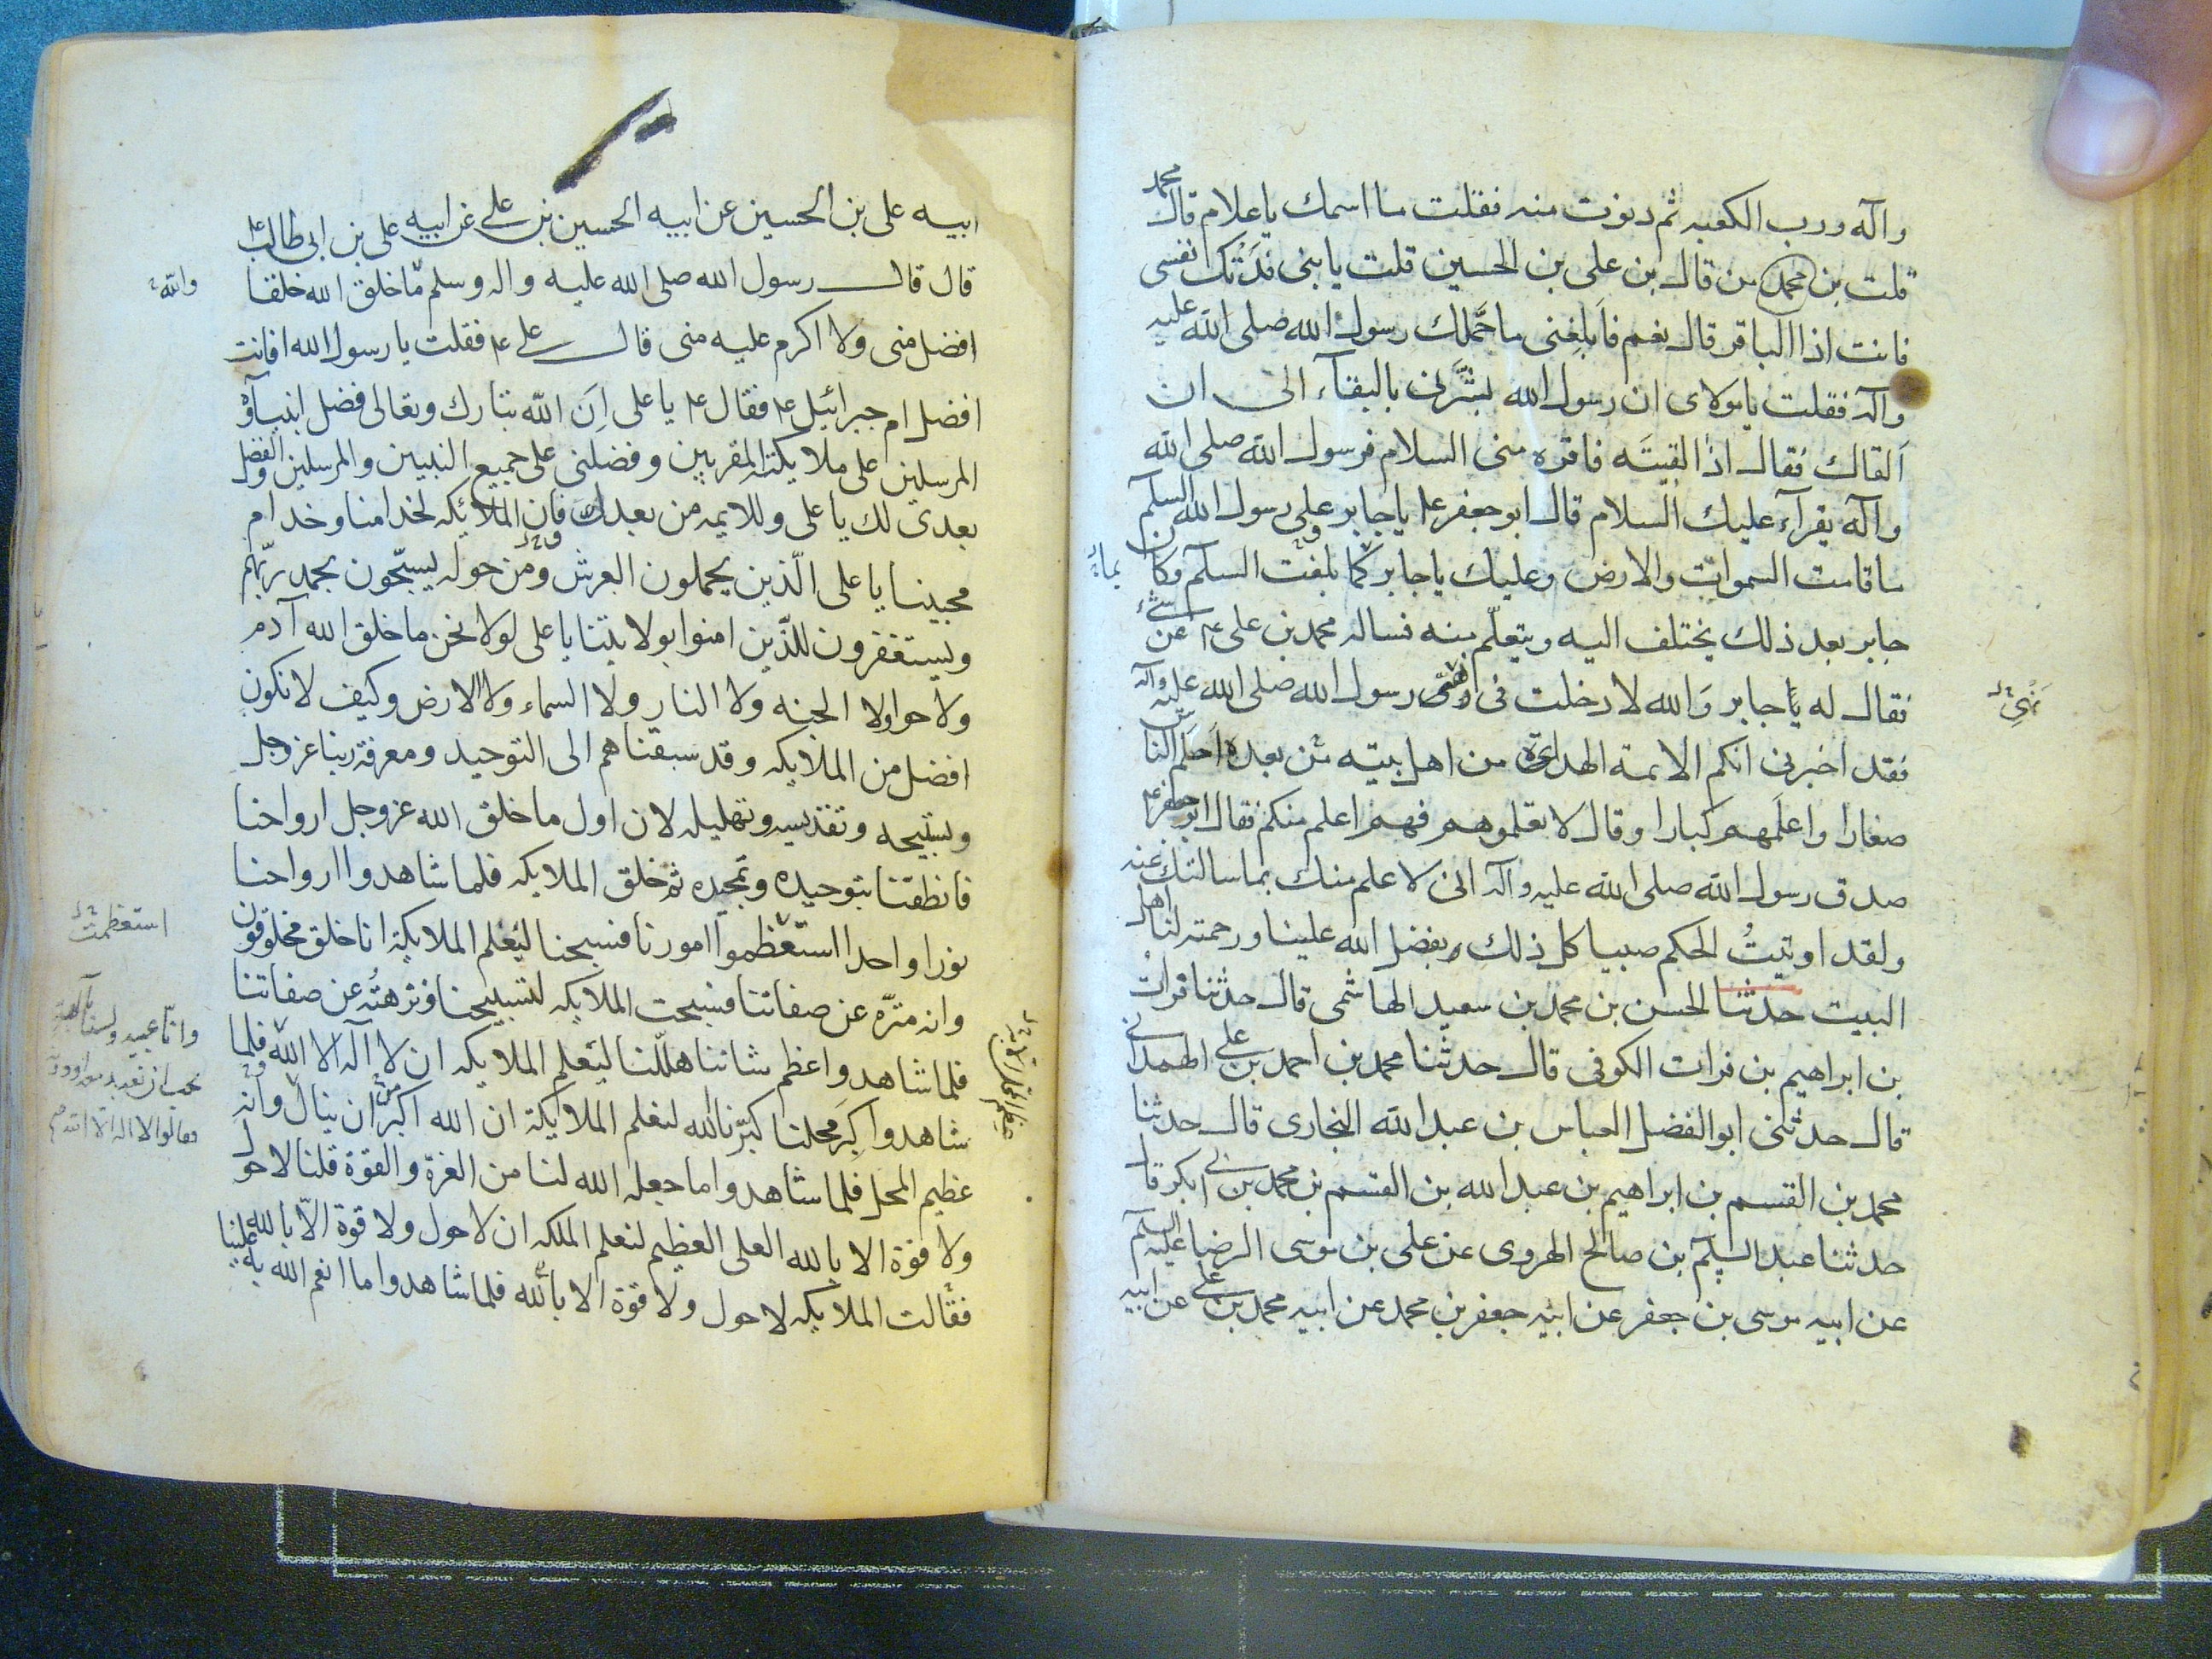 محمد
وآله ورب الكعبه ثم دنوت منه فقلت ما اسمك يا غلام قال
قلت بن محمد من قال بن علي بن الحسين قلت يا بنى فدتك نفسى
فانت اذا الباقر قال نعم فابلغنى ما حملك رسول الله صلى الله عليه
وآله فقلت يا مولاى ان رسول الله بشرنى بالبقآء الى ان
القاك فقال اذا لقيته فاقره منى السلام فرسول الله صلى الله
وآله يقرآء عليك السلام قال ابو جعفر ع يا جابر وعلى رسول الله السلم
ما قامت السموات والارض وعليك يا جابر كما بلغت السلم وكان
بما
جابر بعد ذلك يختلف اليه ويتعلم منه فساله محمد بن على ع عن شئ
فقال له يا جابر والله لا دخلت فى نهى رسول الله صلى الله عليه وآله
نهى
فقد اخبرنى انكم الائمة الهداة من اهل بيته من بعده احلم الناس
صغارا واعلمهم كبارا وقال لا تعلموهم فهم اعلم منكم فقال ابو جعفر ع
صدق رسول الله صلى الله عليه وآله انى لاعلم منك بما سالتك عنه
ولقد اوتيت الحكم صبيا كل ذلك بفضل الله علينا ورحمته لنا اهل
البيت حدثنا الحسن بن محمد بن سعيد الهاشمى قال حدثنا فرات
بن ابراهيم بن فرات الكوفى قال حدثنا محمد بن احمد بن على الهمدانى
قال حدثنى ابو الفضل العباس بن عبد الله البخارى قال حدثنا
محمد بن القسم بن ابراهيم بن عبد الله بن القسم بن محمد بن ابى بكر قال
حدثنا عبد السلم بن صالح الهروى عن على بن موسى الرضا عليه السلم
عن ابيه موسى بن جعفر عن ابيه جعفر بن محمد عن ابيه محمد بن على عن ابيه
ابيه على بن الحسين عن ابيه الحسين بن على عن ابيه على بن ابى طالب ع
قال قال رسول الله صلى الله عليه واله وسلم ما خلق الله خلقا
والله
افضل منى ولا اكرم عليه منى قال على ع فقلت يا رسول الله افانت
افضل ام جبرائيل ع فقال ع يا على ان الله تبارك وتعالى فضل انبيآؤه
المرسلين على ملايكته المقربين وفضلنى على جميع النبيين والمرسلين والفضل
بعدى لك يا على وللايمه من بعدك فان الملائكه لخدامنا وخدام
محبينا يا على الذين يحملون العرش ومن حوله يسبحون بحمد ربهم
ويستغفرون للذين امنوا بولايتنا يا على لولا نحن ما خلق الله آدم
ولا حوا ولا الجنه ولا النار ولا السماء ولا الارض وكيف لا نكون
افضل من الملايكه وقد سبقناهم الى التوحيد ومعرفة ربنا عز وجل
وتسبيحه وتقديسه وتهليله لان اول ما خلق الله عز وجل ارواحنا
فانطقنا بتوحيده وتمجيده ثم خلق الملايكه فلما شاهدوا ارواحنا
نورا واحدا استعظموا امورنا فسبحنا ليعلم الملايكة انا خلق مخلوقون
استعظمت
وانه منزه عن صفاتنا فسبحت الملايكه لتسبيحنا ونزهته عن صفاتنا
فلما شاهدوا عظم شاننا هللنا ليعلم الملايكه ان لا اله الا الله فلما
وانا عبيد ولسنا بآلهة
شاهدوا كبر محلنا كبرنا الله لتعلم الملايكة ان الله اكبر من ان ينال وانه
عظيم المحل فلما شاهدوا ما جعله الله لنا من العزة والقوة قلنا لا حول
ولا قوة الا بالله العلى العظيم لتعلم الملكه ان لا حول ولا قوة الا بالله
فقالت الملايكه لا حول ولا قوة الا بالله فلما شاهدوا ما انعم الله به علينا